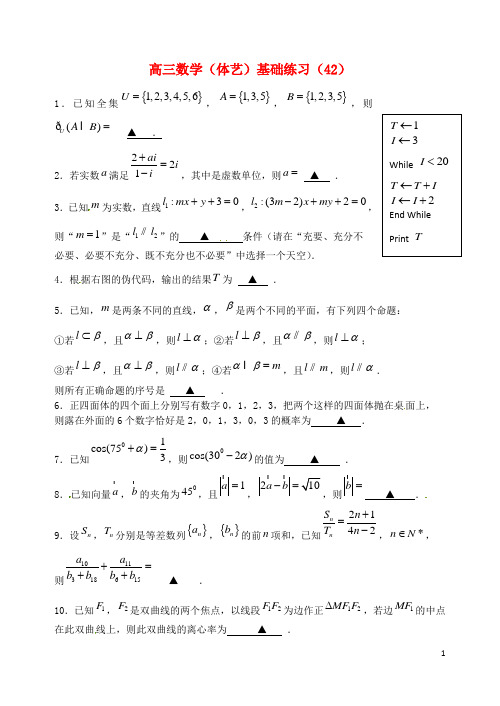 高三数学（体艺）基础练习（42）
1．已知全集 U = {1,2,3,4,5,6}，A = {1,3,5}，B = {1,2,3,5}，则
ð_U(A I B) = ▲ ．
2．若实数 a 满足 (2+ai)/(1−i) = 2i，其中是虚数单位，则 a = ▲ ．
3．已知 m 为实数，直线 l₁ : mx + y + 3 = 0，l₂ : (3m − 2)x + my + 2 = 0，
则“m = 1”是“l₁ // l₂”的 ▲ 条件（请在“充要、充分不
必要、必要不充分、既不充分也不必要”中选择一个天空）．
4．根据右图的伪代码，输出的结果 T 为 ▲ ．
T ← 1
I ← 3
While I < 20
T ← T + I
I ← I + 2
End While
Print T
5．已知，m 是两条不同的直线，α，β 是两个不同的平面，有下列四个命题：
①若 l ⊂ β，且 α ⊥ β，则 l ⊥ α；②若 l ⊥ β，且 α // β，则 l ⊥ α；
③若 l ⊥ β，且 α ⊥ β，则 l // α；④若 α I β = m，且 l // m，则 l // α．
则所有正确命题的序号是 ▲ ．
6．正四面体的四个面上分别写有数字 0，1，2，3，把两个这样的四面体抛在桌面上，
则露在外面的 6 个数字恰好是 2，0，1，3，0，3 的概率为 ▲ ．
7．已知 cos(75⁰ + α) = 1/3，则 cos(30⁰ − 2α) 的值为 ▲ ．
8．已知向量 a，b 的夹角为 45⁰，且 |a| = 1，|2a − b| = √10，则 |b| = ▲ ．．
9．设 Sₙ，Tₙ 分别是等差数列 {aₙ}，{bₙ} 的前 n 项和，已知 Sₙ/Tₙ = (2n+1)/(4n−2)，n ∈ N*，
则 a₁₀/(b₃ + b₁₈) + a₁₁/(b₆ + b₁₅) = ▲ ．
10．已知 F₁，F₂ 是双曲线的两个焦点，以线段 F₁F₂ 为边作正 ΔMF₁F₂，若边 MF₁ 的中点
在此双曲线上，则此双曲线的离心率为 ▲ ．
1